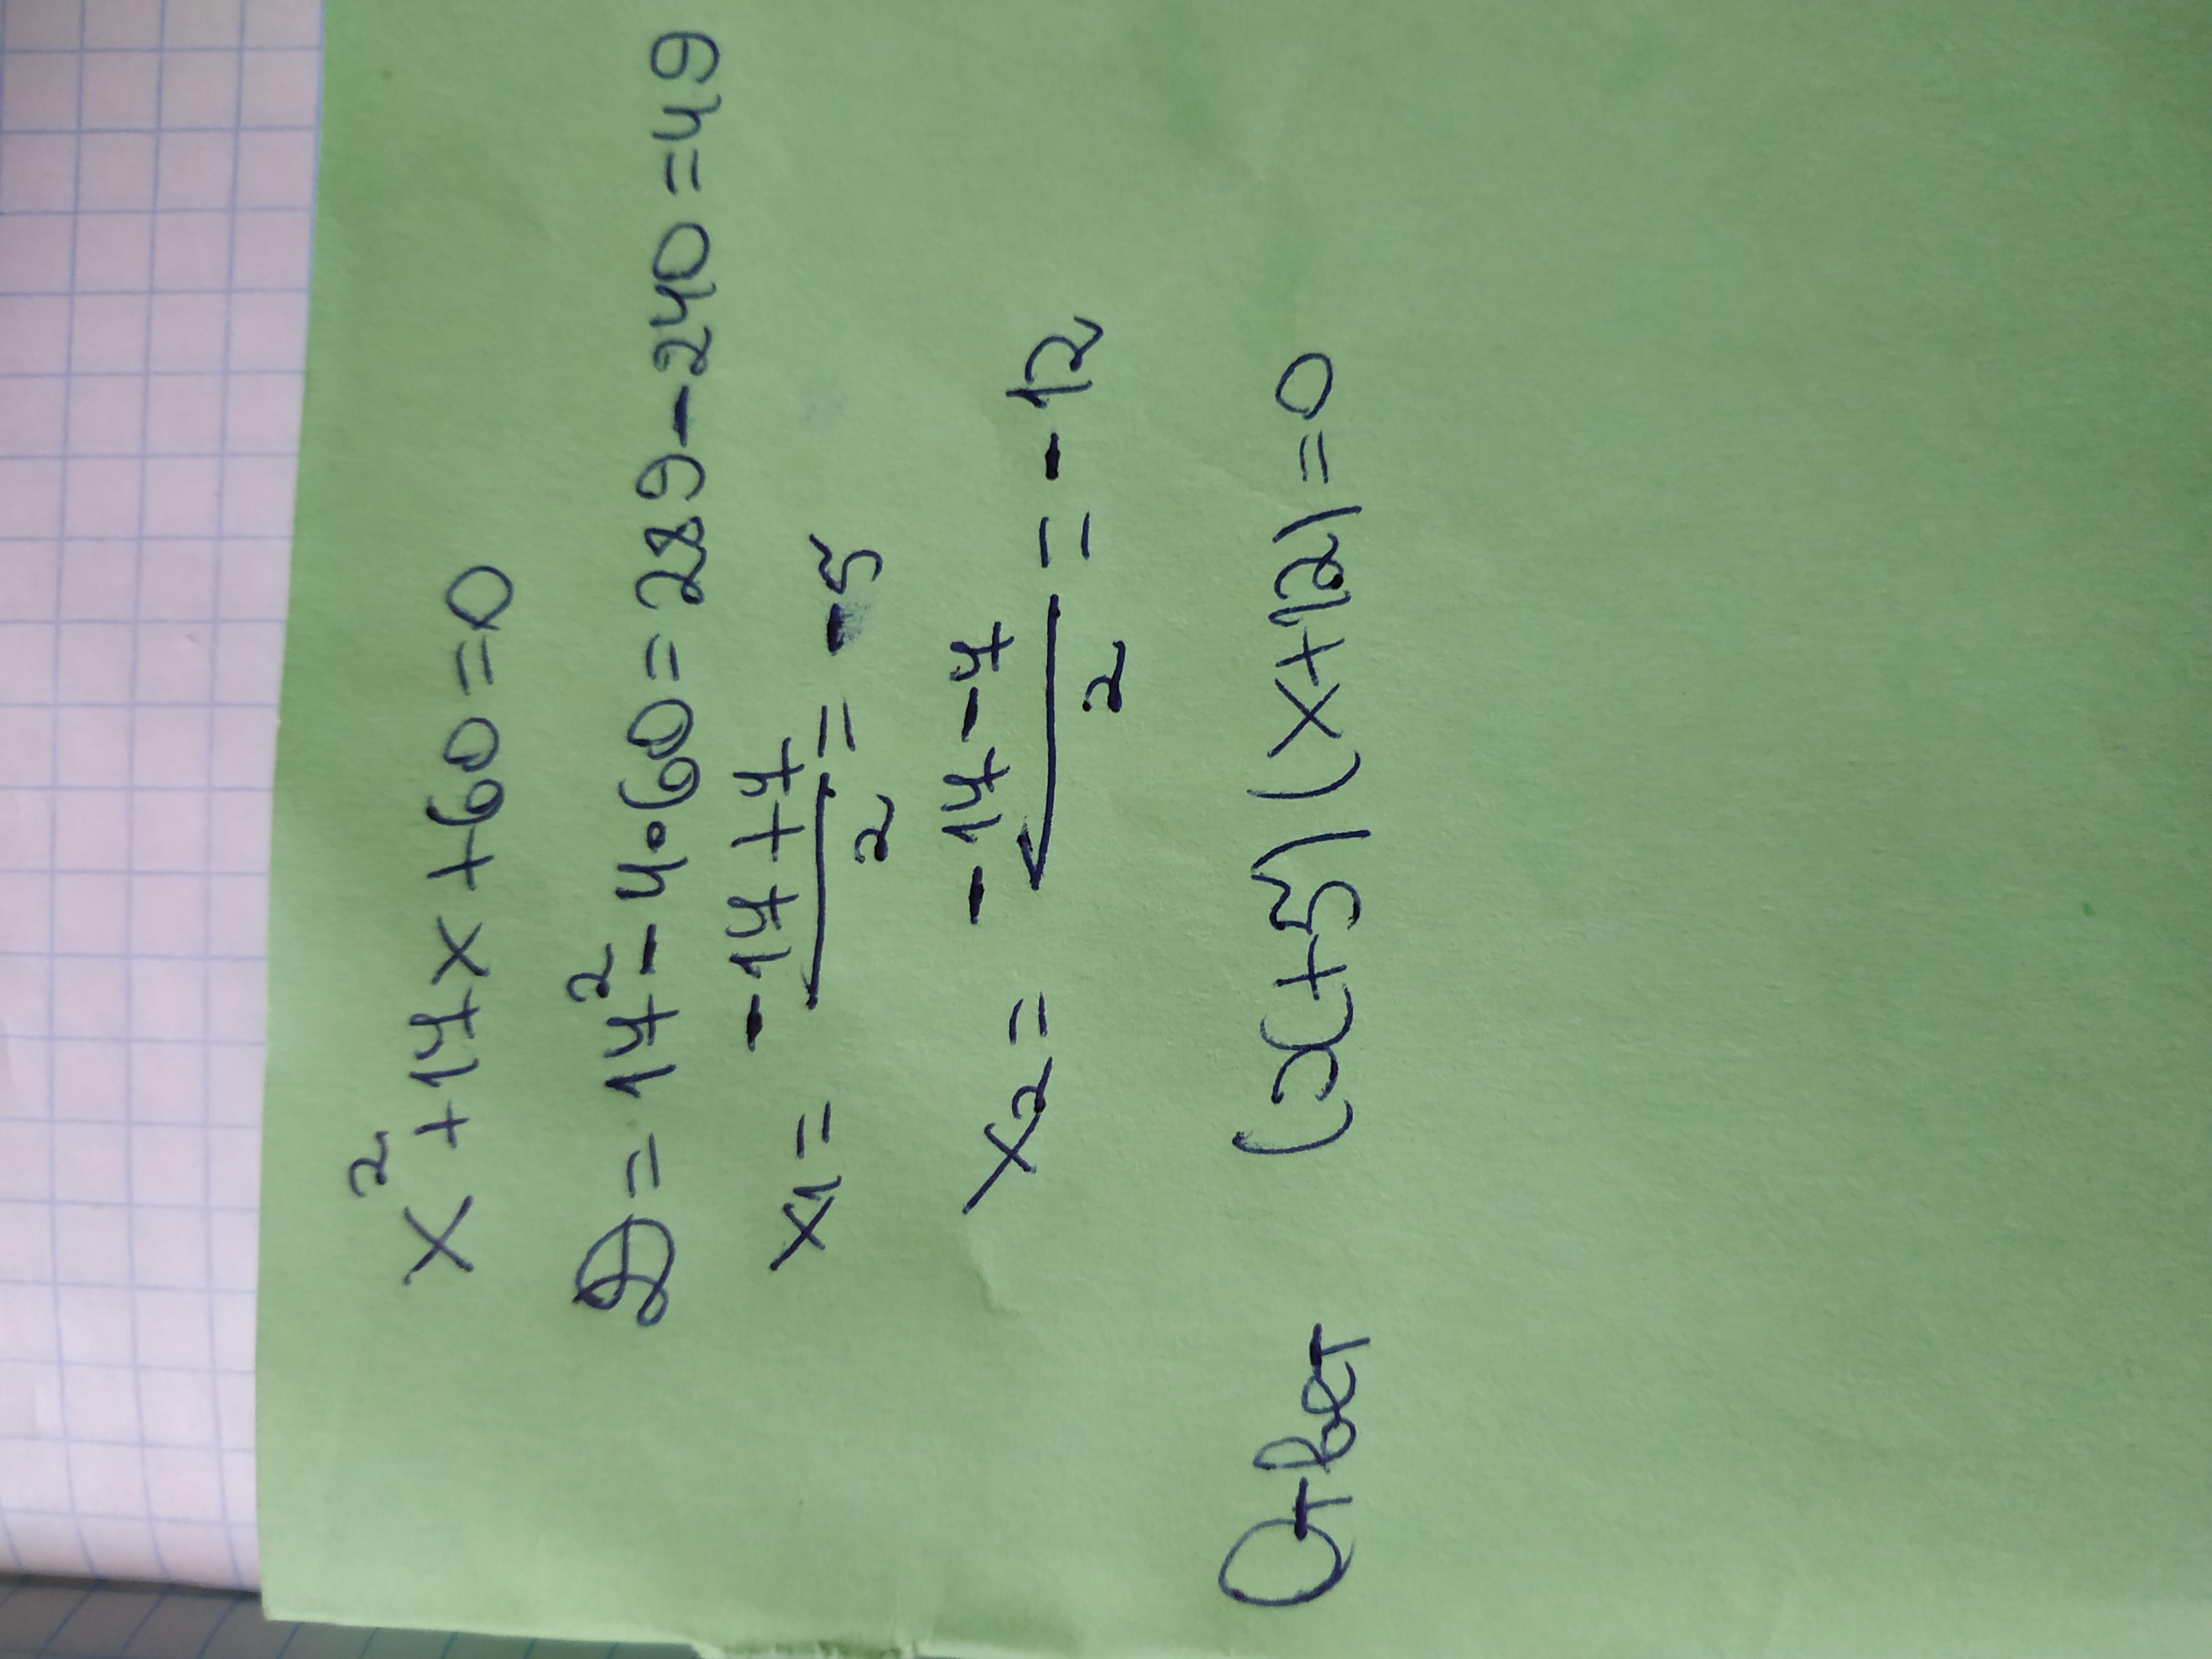 x² + 17x + 60 = 0
D = 17² - 4 · 60 = 289 - 240 = 49
x₁ = (-17 + 7)/2 = -5
x₂ = (-17 - 7)/2 = -12
Ответ (x+5)(x+12) = 0